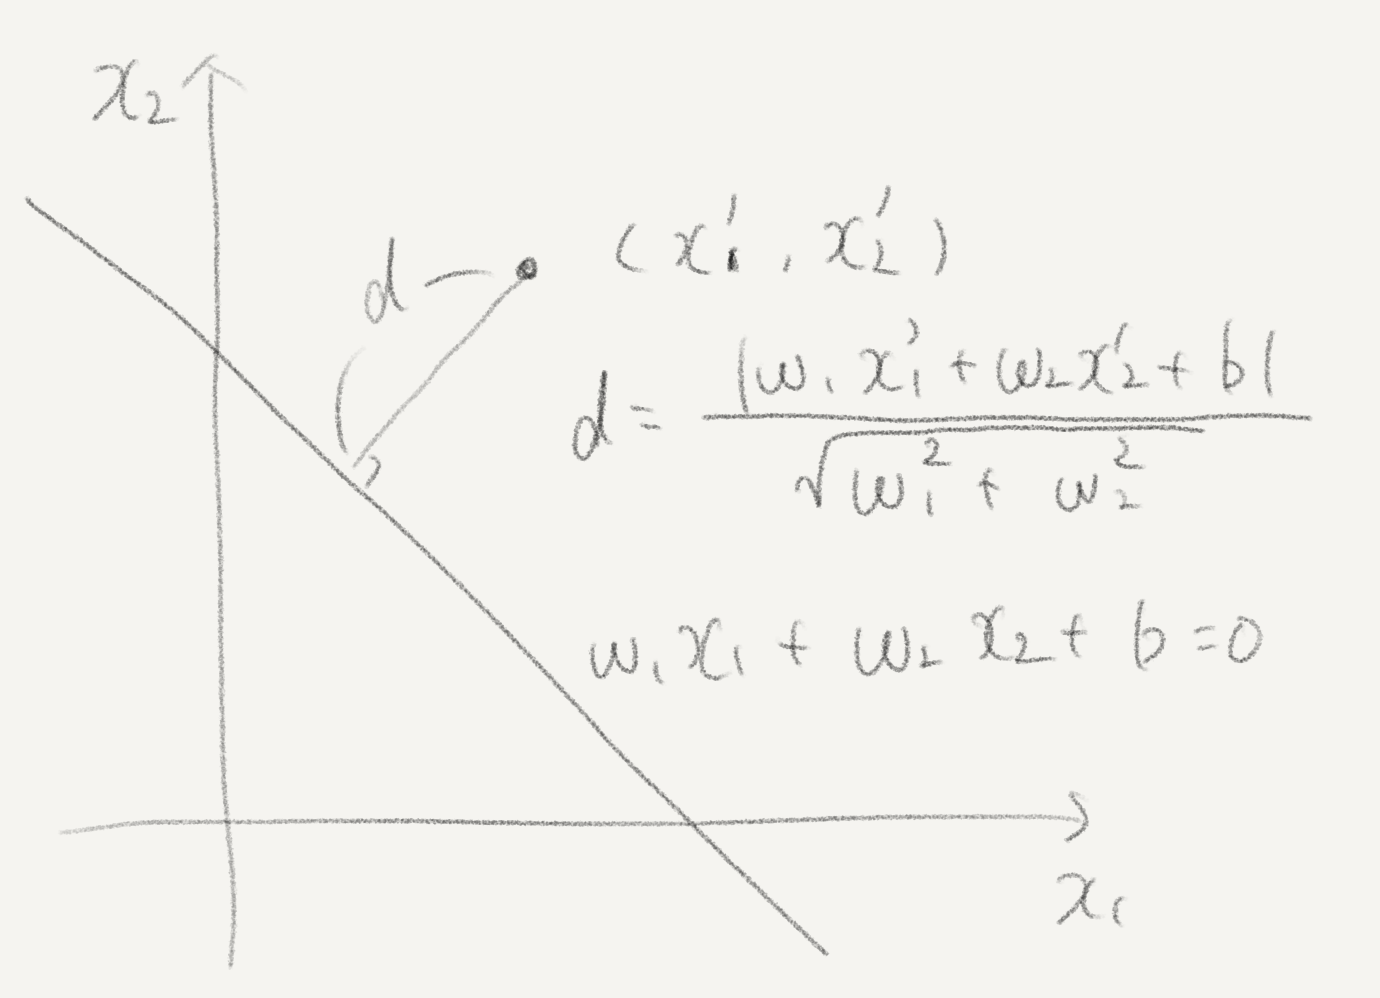 x₂
(x₁′, x₂′)
d
d = |w₁x₁′ + w₂x₂′ + b| / √(w₁² + w₂²)
w₁x₁ + w₂x₂ + b = 0
x₁